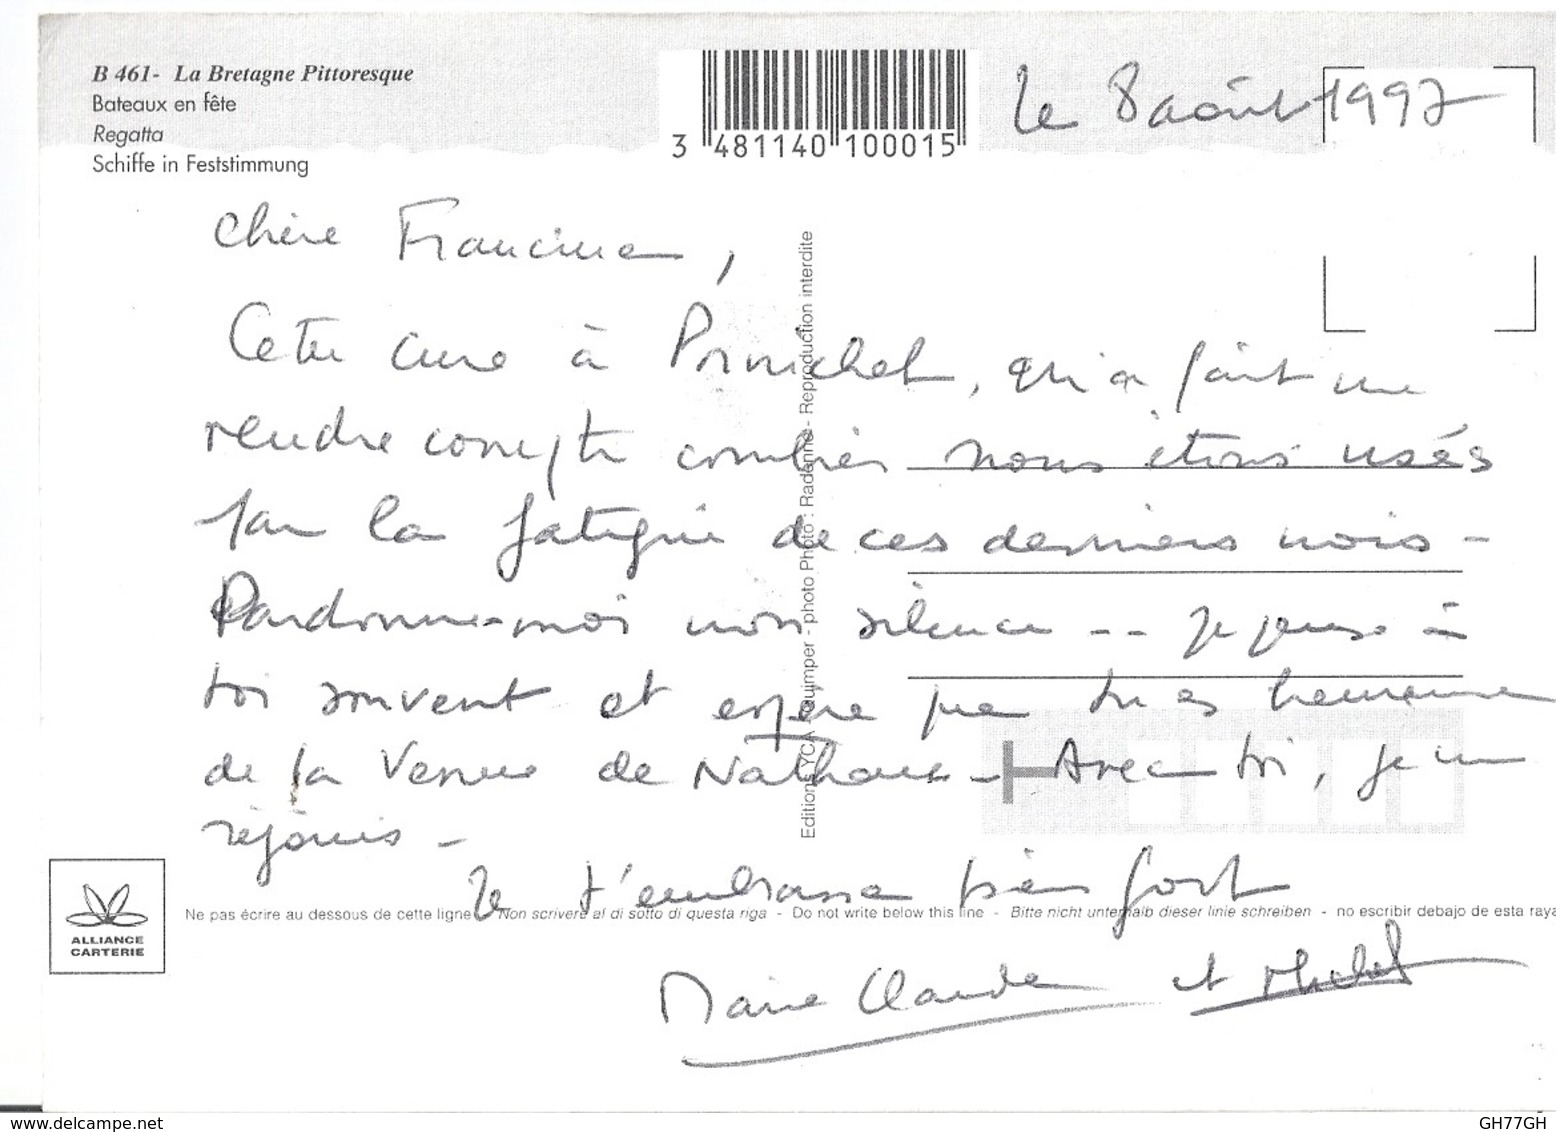 B 461- La Bretagne Pittoresque
Bateaux en fête
Regatta
Schiffe in Feststimmung
3 481140 100015
le 8 août 1997
Chère Francine,
Cette cure à Pornichet, qui a fait me
rendre compte combien nous étions usés
par la fatigue de ces derniers mois -
Pardonne-moi mon silence -- je pense à
toi souvent et espère que tu es heureuse
de la venue de - Avec toi, je me
réjouis -
Je t'embrasse bien fort
Marie Claude et Michel
Editions YCA Quimper - photo Photo : Radenne - Reproduction interdite
ALLIANCE
CARTERIE
Ne pas écrire au dessous de cette ligne - Non scrivere al di sotto di questa riga - Do not write below this line - Bitte nicht unterhalb dieser linie schreiben - no escribir debajo de esta raya
www.delcampe.net
GH77GH